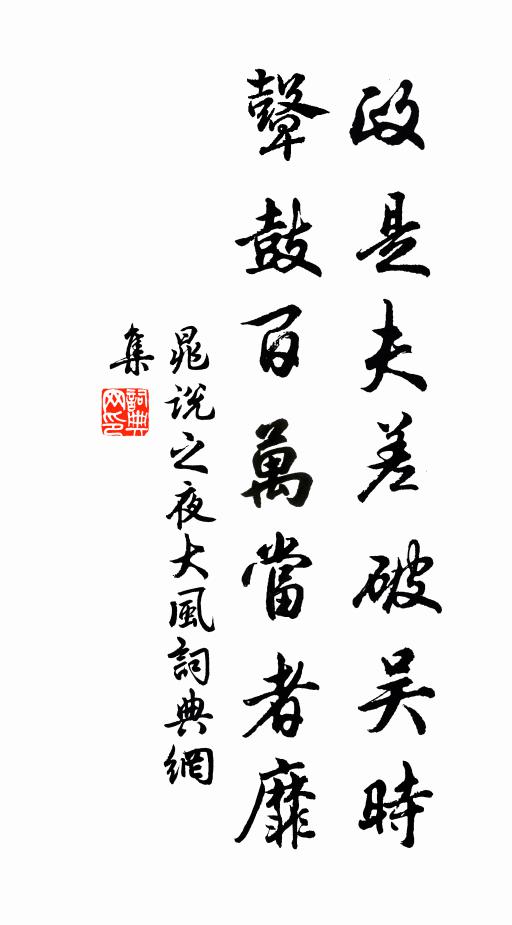 政是夫差破吴時
鼙鼓百萬當者靡
晁說之夜大風詞典網
集
詞典
网印